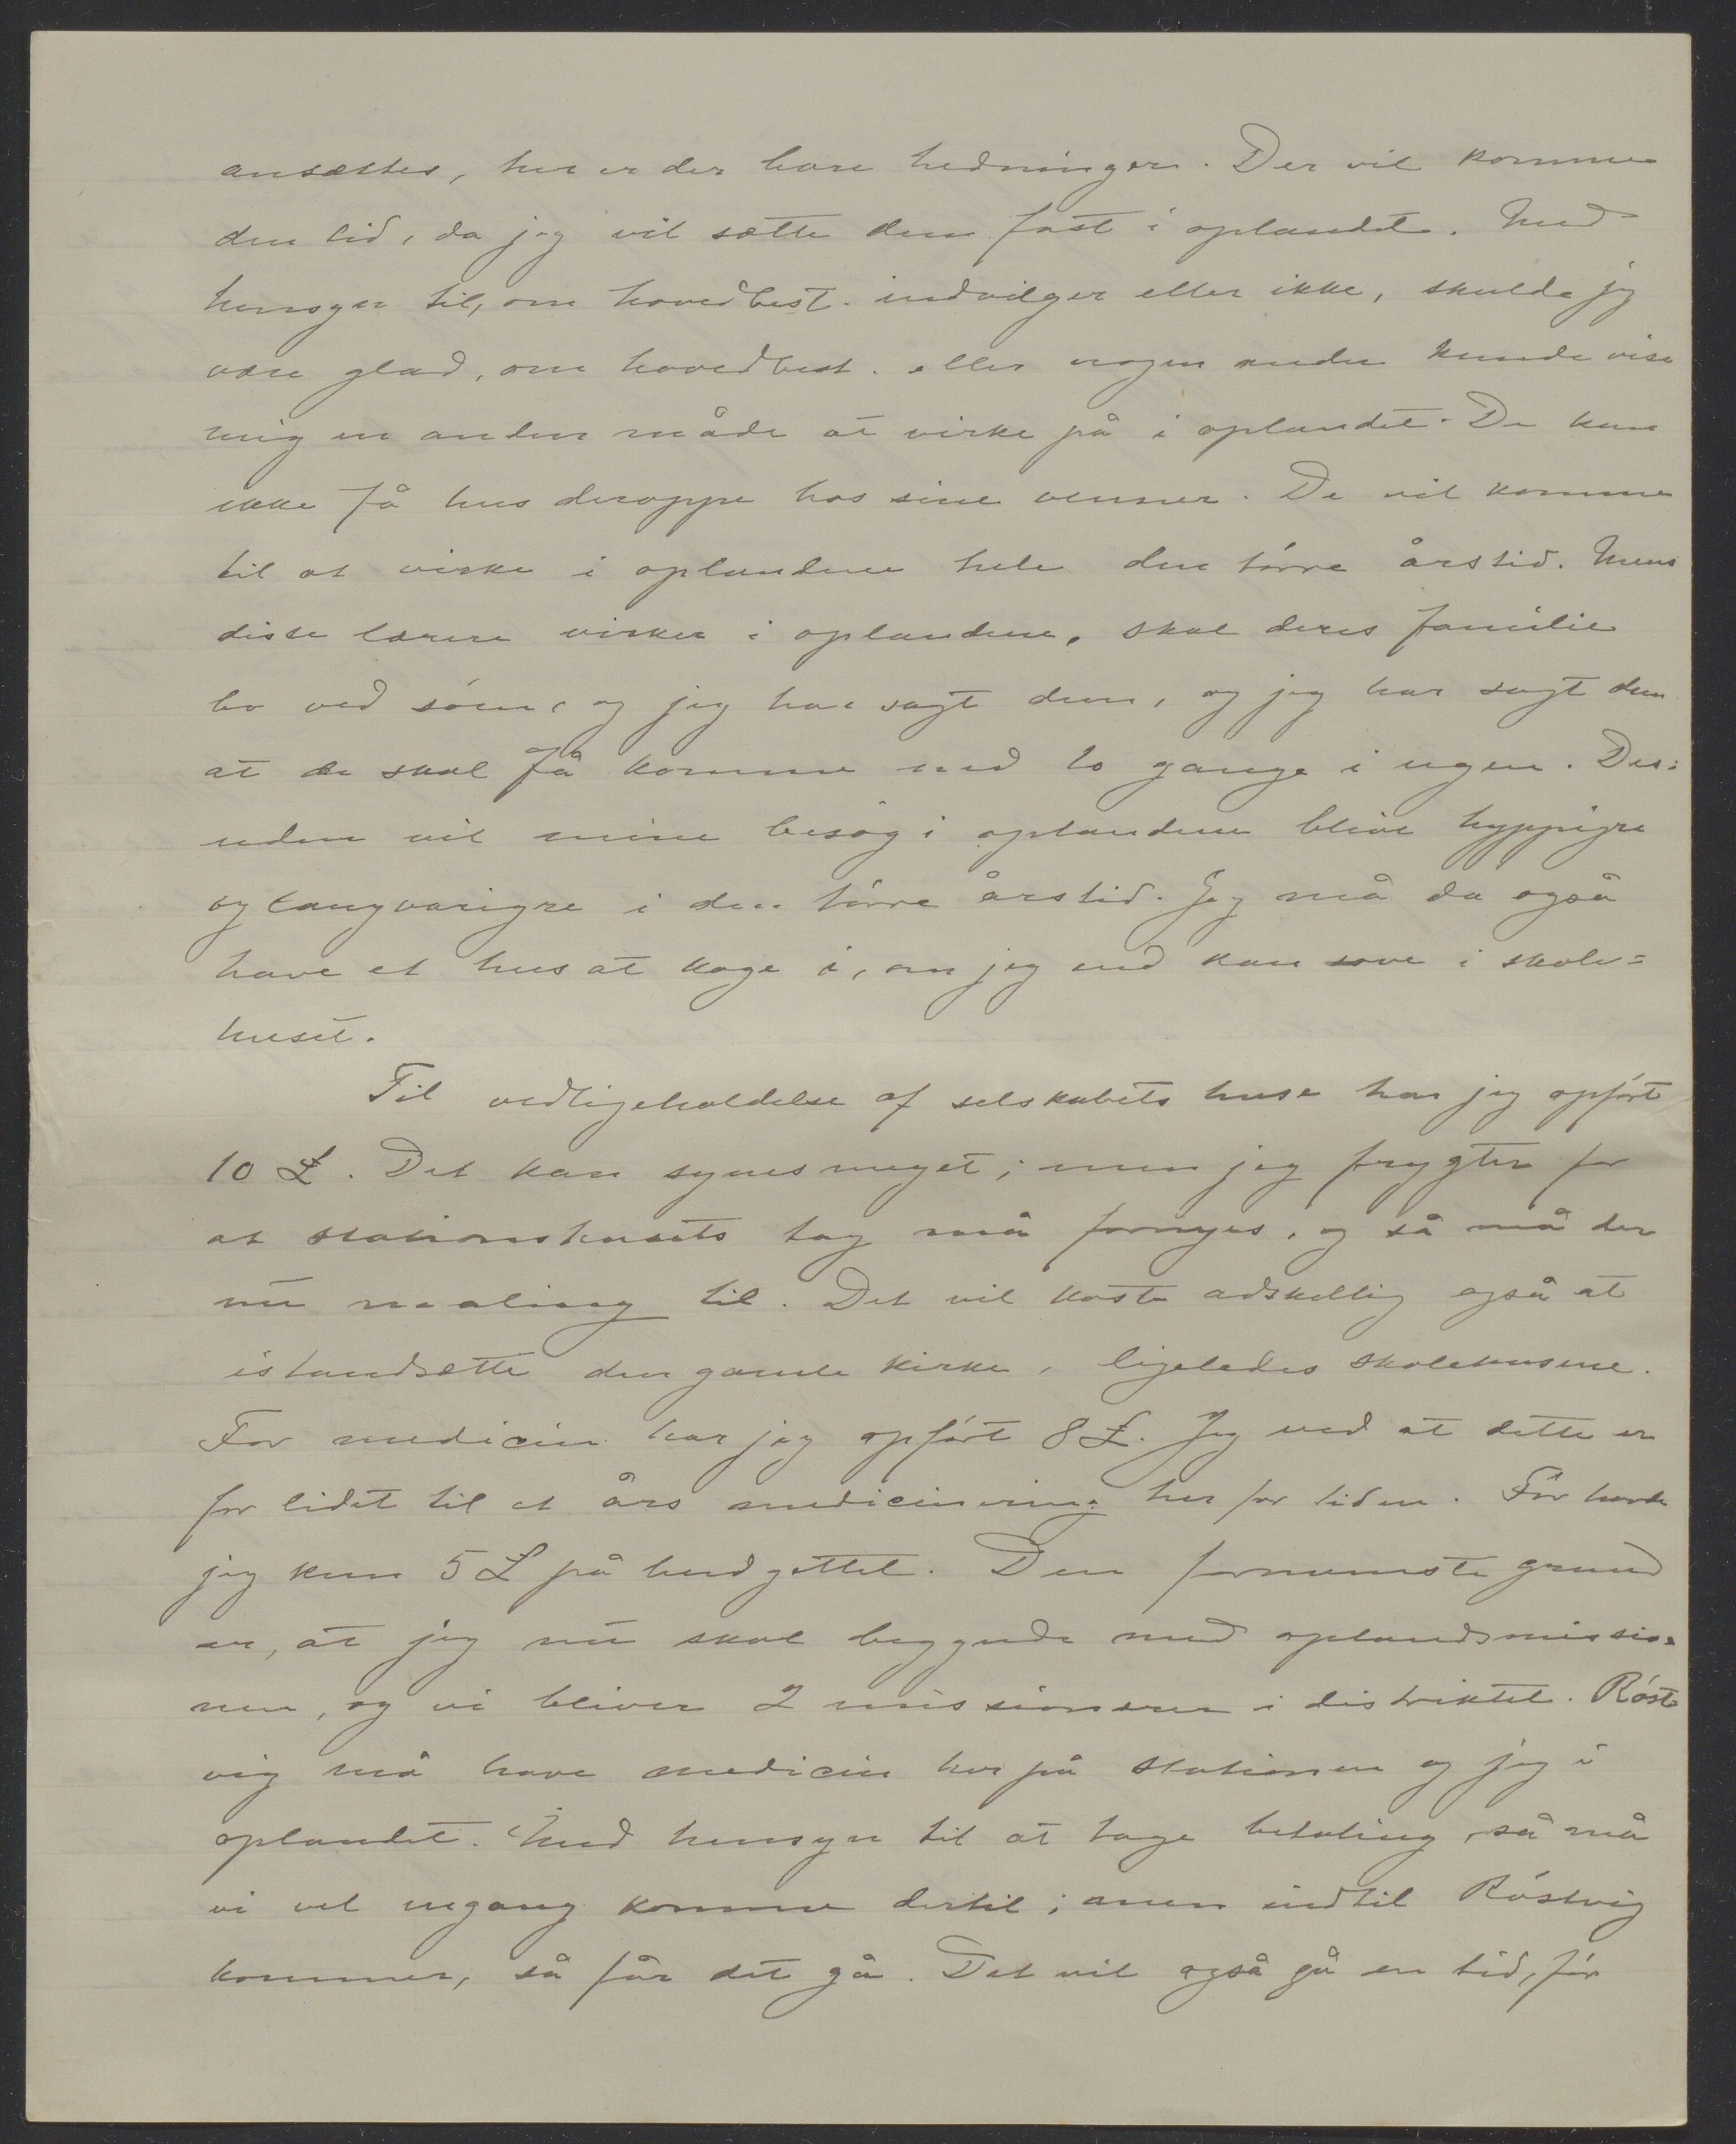 ansættes, her er der bare hedninger. Der vil komme
den tid, da jeg vil sætte dem fast i oplandet. Med
hensyn til, om hovedbest. indvilger eller ikke, skulde jeg
være glad, om hovedbest. eller nogen anden kunde vise
mig en anden måde at virke på i oplandet. De kan
ikke få hus deroppe hos sine venner. De vil komme
til at virke i oplandene hele den tørre årstid. Mens
disse lærere virker i oplandene, skal deres familie
bo ved søen, og jeg har sagt dem, og jeg har sagt dem
at de skal få komme ned to gange i ugen. Des=
uden vil mine besøg i oplandene blive hyppigre
og langvarigre i den tørre årstid. Jeg må da også
have et hus at koge i, om jeg end kan sove i skole=
huset.
Til vedligeholdelse af selskabets huse har jeg opført
10 £. Det kan synes meget; men jeg frygter for
at stationshusets tag må fornyes, og så må der
nu maling til. Det vil koste adskillig også at
istandsætte den gamle kirke, ligeledes skolehusene.
For medicin har jeg opført 8 £. Jeg ved at dette er
for lidet til et års medicinering her for tiden. Før havde
jeg kun 5 £ på budgettet. Den fornemste grund
er, at jeg nu skal begynde med oplandsmissio=
nen, og vi bliver 2 missionærer i distriktet. Røst
vig må have medicin her på stationen og jeg i
oplandet. Med hensyn til at tage betaling, så må
vi vel engang komme dertil; men indtil Røstvig
kommer, så får det gå. Det vil også gå en tid, før